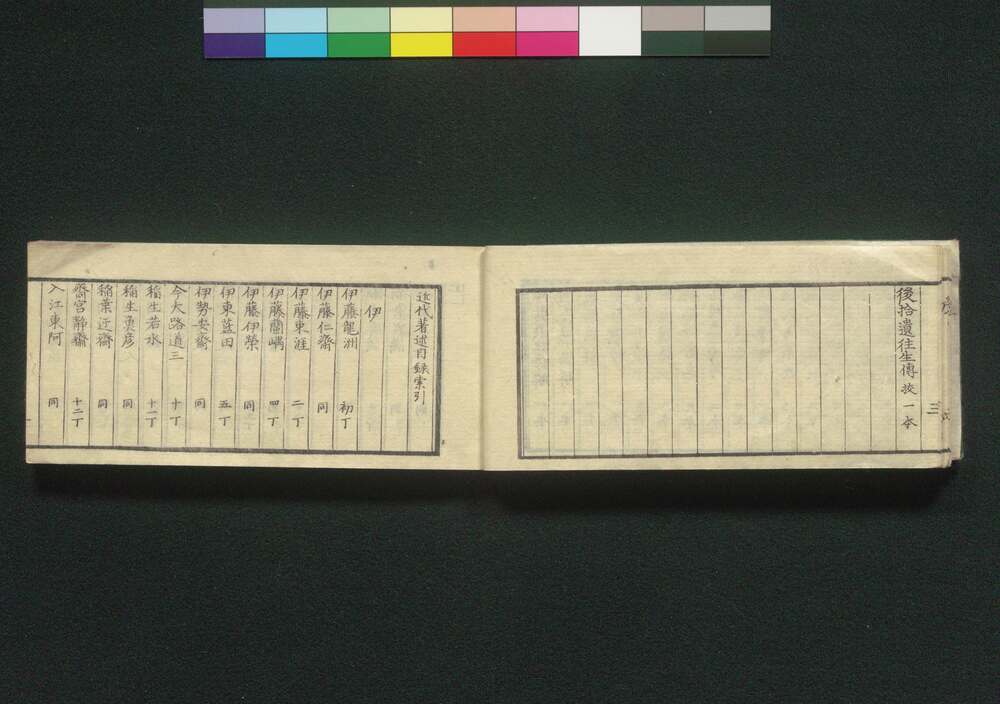 後拾遺往生傳 挍一本
三
近代著述目録索引
伊
伊藤龍洲 初丁
伊藤仁齋 同
伊藤東涯 二丁
伊藤蘭嵎 四丁
伊藤伊榮 同
伊東藍田 五丁
伊勢安齋 同
今大路道三 十丁
稲生若水 十一丁
稲生魚彦 同
稲葉迂齋 同
齋宮静齋 十二丁
入江東阿 同